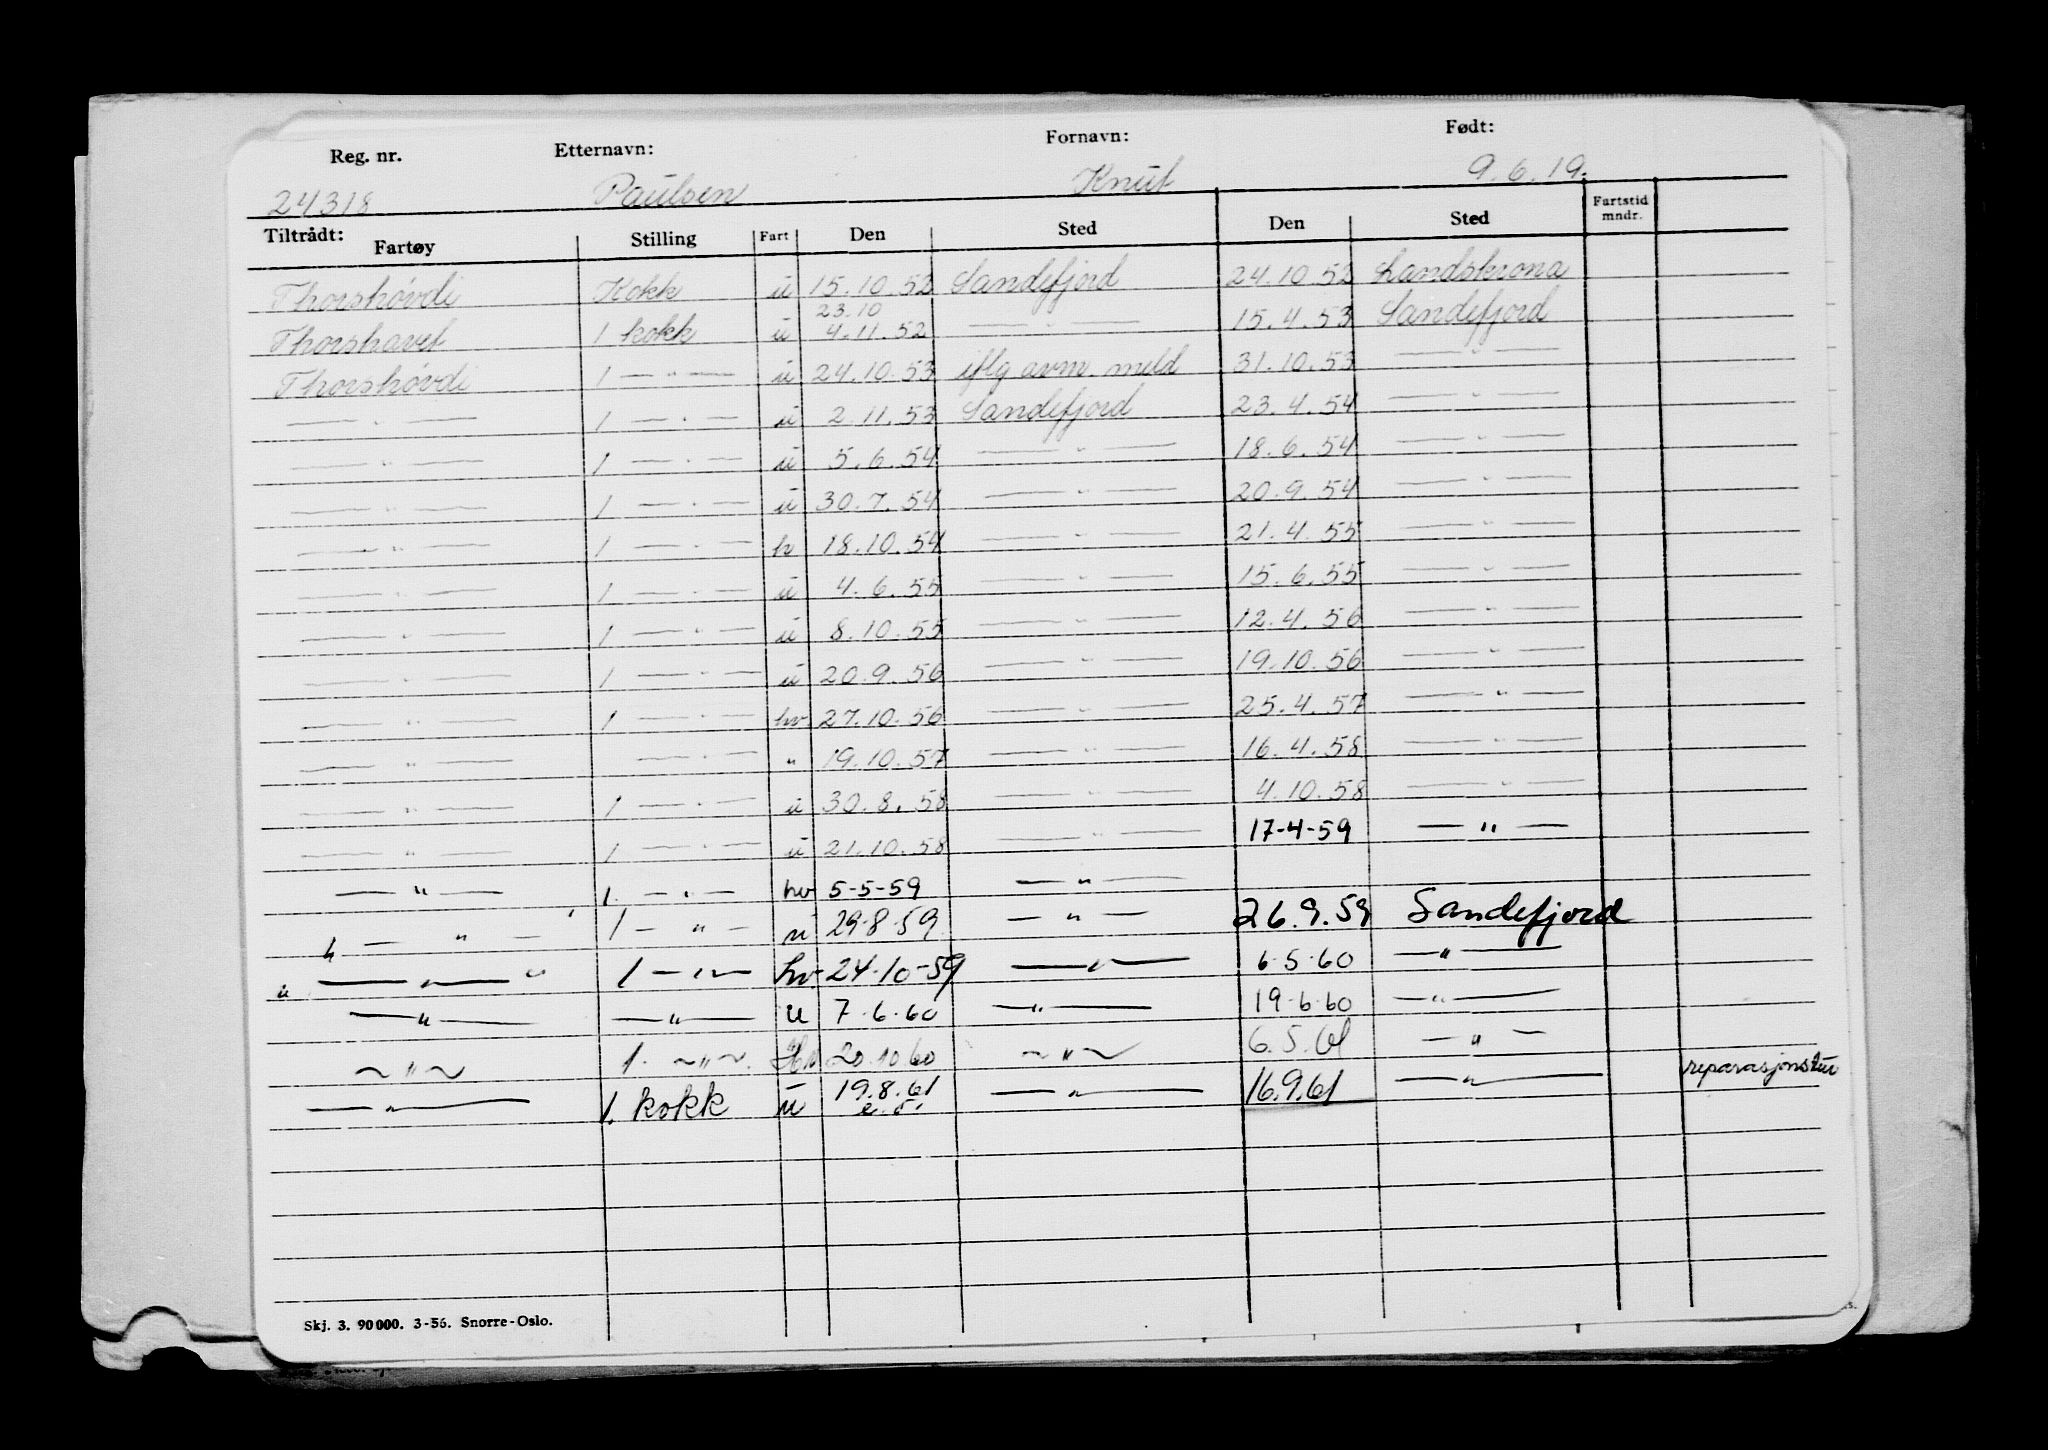 Reg. nr. Etternavn: Fornavn: Født:
24318 Paulsen Knut 9.6.19.
Tiltrådt: Fartøy Stilling Fart Den Sted Den Sted Fartstid mndr.
Thorshövdi Kokk u 15.10.52 Sandefjord 24.10.52 Landskrona
23.10
Thorshavet 1 kokk u 4.11.52 — " — 15.4.53 Sandefjord
Thorshövdi 1 — " — u 24.10.53 iflg avm. meld 31.10.53 — " —
— " — 1 — " — u 2.11.53 Sandefjord 23.4.54 — " —
— " — 1 — " — u 5.6.54 — " — 18.6.54 — " —
— " — 1 — " — u 30.7.54 — " — 20.9.54 — " —
— " — 1 — " — h 18.10.54 — " — 21.4.55 — " —
— " — 1 — " — u 4.6.55 — " — 15.6.55 — " —
— " — 1 — " — u 8.10.55 — " — 12.4.56 — " —
— " — 1 — " — u 20.9.56 — " — 19.10.56 — " —
— " — 1 — " — hv 27.10.56 — " — 25.4.57 — " —
— " — — " — " 19.10.57 — " — 16.4.58 — " —
— " — 1 — " — u 30.8.58 — " — 4.10.58 — " —
— " — 1 — " — u 21.10.58 — " — 17-4-59 — " —
— " — 1. — " — hv 5-5-59 — " —
— " — 1 — " — u 29.8.59 — " — 26.9.59 Sandefjord
— " — 1 — " — hv. 24-10-59 — " — 6.5.60 — " —
— " — — " — u 7.6.60 — " — 19.6.60 — " —
— " — 1. — " —. Hv 20.10.60 — " — 6.5.61 — " —
— " — 1. kokk u 19.8.61 — " — 16.9.61 — " — reparasjonstur
e. o.
Skj. 3. 90000. 3-56. Snorre-Oslo.